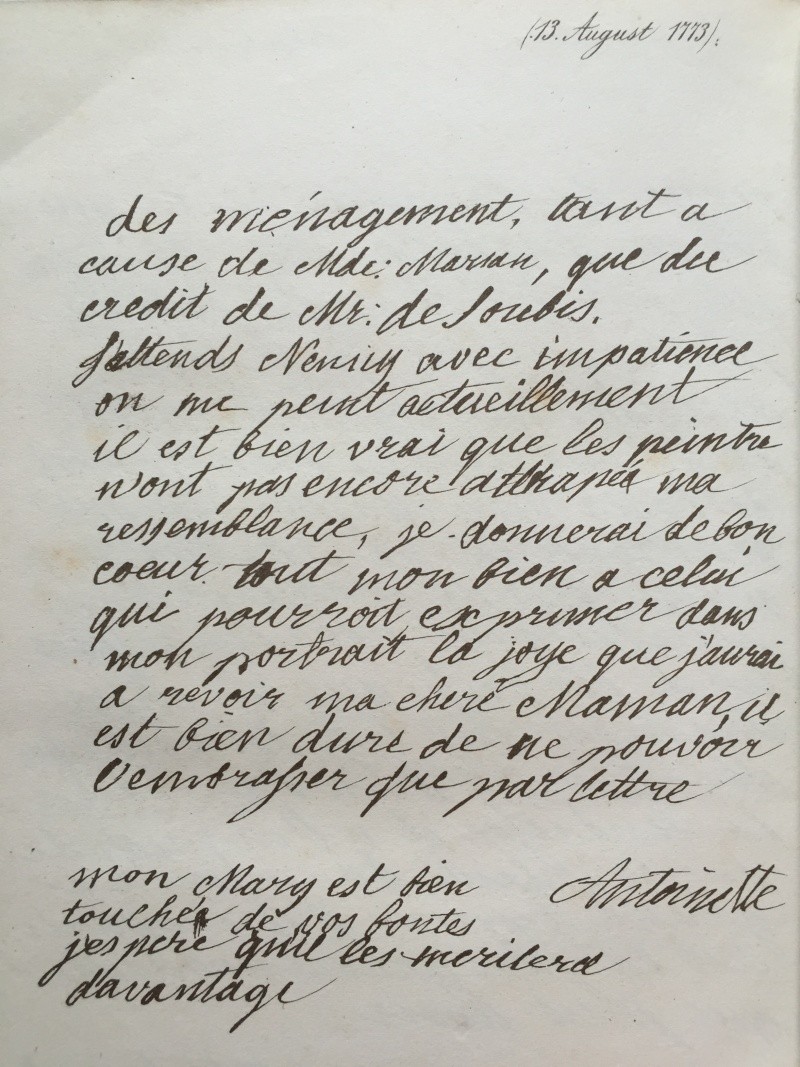 (13. August 1773).
des ménagement, tant a
cause de Mde: Marsan, que du
credit de Mr: de Soubis.
J'attends Nenny avec impatience
on me peint actueillement
il est bien vrai que les peintre
n'ont pas encore atthapéa ma
ressemblance, je donnerai de bon
coeur tout mon bien a celui
qui pourroit exprimer dans
mon portrait la joye que j'aurai
a revoir ma cheré Maman, il
est bien dure de ne pouvoir
l'embrasser que par lettre
Antoinette
mon Mary est bien
touchée de vos bontes
j'espere qu'il les meritera
davantage